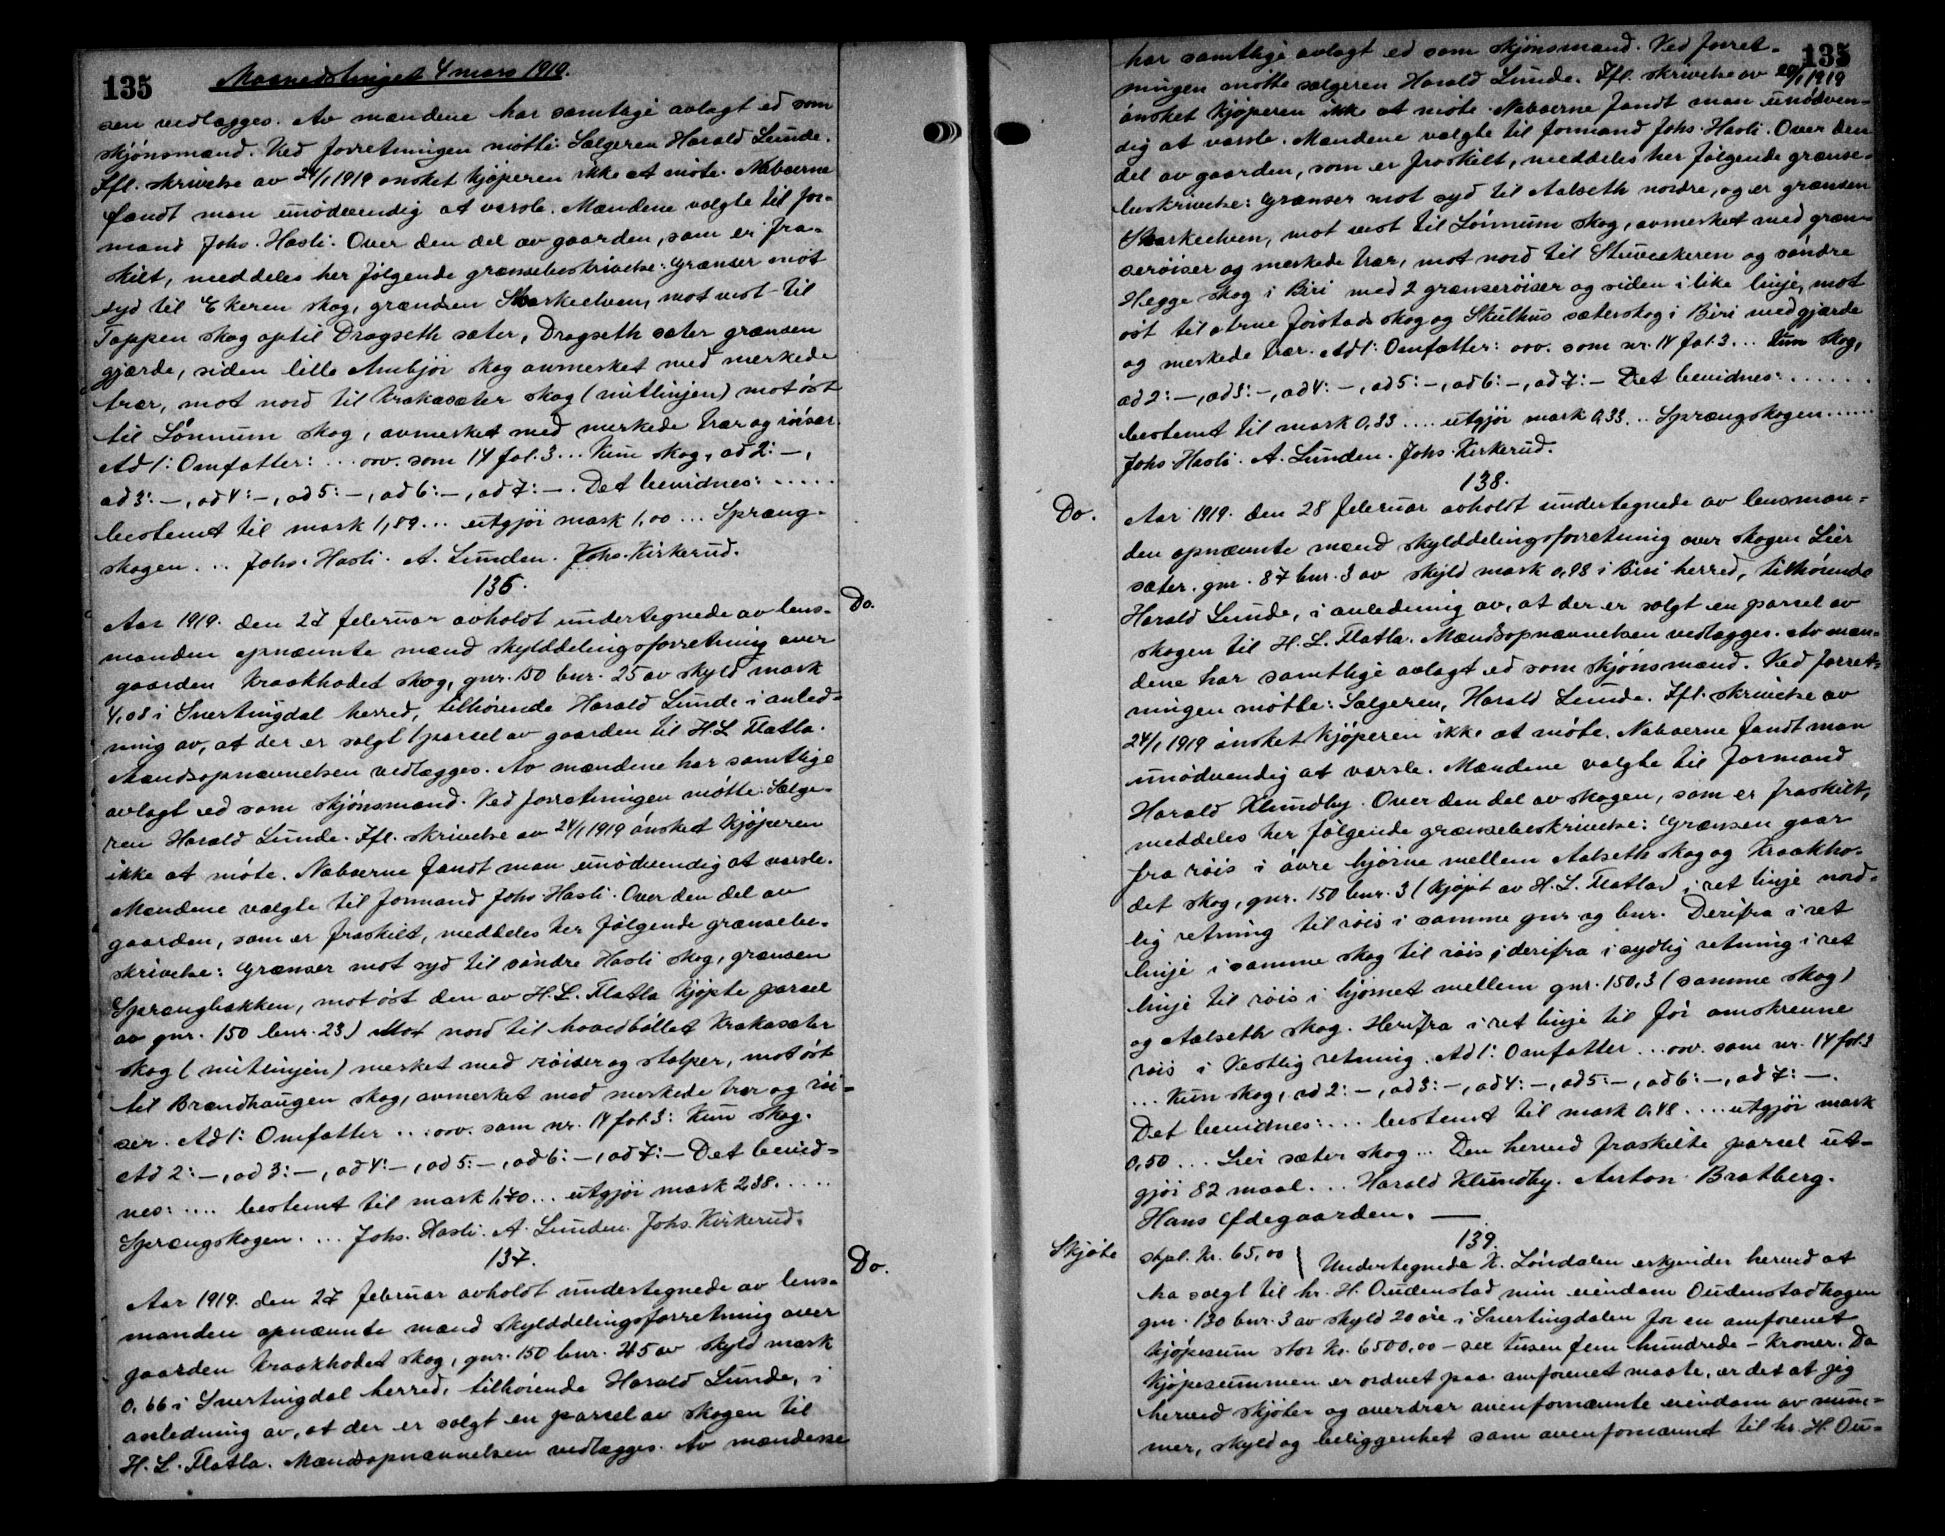 135 Maanedstinget 4 mars 1919.
sen vedlægges. Av mændene har samtlige avlagt ed som
skjönsmænd. Ved forretningen mötte: Sælgeren Harald Lunde.
Ifl. skrivelse av 24/1 1919 önsket kjøperen ikke at möte. Naboerne
fandt man unödvendig at varsle. Mændene valgte til for-
mand Johs. Hasli. Over den del av gaarden, som er fra-
skilt, meddeles her følgende grænsebeskrivelse: Grænser mot
syd til Ekeren skog, grænden Starkeelven, mot vest til
Toppen skog optil Dragseth sæter, Dragseth sæter grænsen
gjærde, siden lille Ambjör skog avmerket med merkede
trær, mot nord til Krakasæter skog (mitlinjen) mot öst
til Lönnum skog, avmerket med merkede trær og röiser.
Ad 1: Omfatter: ... ovv. som 14 fol. 3 ... Kun skog, ad 2: -,
ad 3: -, ad 4: -, ad 5: -, ad 6: -, ad 7: -. Det bevidnes: .....
bestemt til mark 1,89 ... utgjör mark 1,00 ... Spræng-
skogen ... Johs. Hasli. A. Lunden. Johs. Kirkerud.
136.
Do.
Aar 1919. den 27 februar avholdt undertegnede av lens-
manden opnævnte mænd skylddelingsforretning over
gaarden Kraakhodet skog, gnr. 150 bnr. 25 av skyld mark
4,08 i Snertingdal herred, tilhörende Harald Lunde i anled-
ning av, at der er solgt 1 parsel av gaarden til H.L. Flatla.
Mandsopnævnelsen vedlægges. Av mændene har samtlige
avlagt ed som skjönsmænd. Ved forretningen mötte: Sælge-
ren Harald Lunde. Ifl. skrivelse av 24/1 1919 önsket kjøperen
ikke at möte. Naboerne fandt man unödvendig at varsle.
Mændene valgte til formand Johs. Hasli. Over den del av
gaarden, som er fraskilt, meddeles her følgende grænsebe-
skrivelse: Grænser mot syd til söndre Hasli skog, grænsen
Sprængbakken, mot öst den av H.L. Flatla kjöpte parsel
av gnr. 150 bnr. 23) Mot nord til hovedbøllet Krakasæter
skog (mitlinjen) merket med röiser og stolper, mot öst
til Brændhaugen skog, avmerket med merkede trær og röi-
ser. Ad 1: Omfatter ... ovv. som nr. 14 fol. 3: Kun skog.
Ad 2: -, ad 3: -, ad 4: -, ad 5: -, ad 6: -, ad 7: - Det bevid-
nes: .... bestemt til mark 1,70 ... utgjör mark 2,38 .....
Sprængskogen. ... Johs. Hasli. A. Lunden. Johs. Kirkerud.
137.
Do.
Aar 1919. den 27 februar avholdt undertegnede av lens-
manden opnævnte mænd skylddelingsforretning over
gaarden Kraakhodet skog, gnr. 150 bnr. 45 av skyld mark
0,66 i Snertingdal herred, tilhörende Harald Lunde, i
anledning av, at der er solgt en parsel av skogen til
H.L. Flatla. Mændsopnævnelsen vedlægges. Av mændene
135
har samtlige avlagt ed som skjönsmænd. Ved forret-
ningen mötte sælgeren Harald Lunde. Ifl. skrivelse av /1 1919
önsket kjöperen ikke at möte. Naboerne fandt man unödven-
dig at varsle. Mændene valgte til formand Johs. Hasli. Over den
del av gaarden, som er fraskilt, meddeles her følgende grænse-
beskrivelse: Grænser mot syd til Aalseth nordre, og er grænsen
Starkeelven, mot vest til Lönnum skog, avmerket med græn-
seröiser og merkede trær, mot nord til Stuveekeren og söndre
Hegge skog i Biri med 2 grænseröiser og siden i like linje, mot
öst til övrue Joistads skog og Skulhus sæterskog i Biri med gjærde
og merkede trær. Ad 1: Omfatter: ovv. som nr. 14 fol. 3 ... Kun skog,
ad 2: -, ad 3: -, ad 4: -, ad 5: -, ad 6: -, ad 7: - Det bevidnes: .......
bestemt til mark 0,33 .... utgjör mark 0,33 ... Sprængskogen ......
Johs. Hasli. A. Lunden. Johs. Kirkerud.
138.
Do.
Aar 1919. den 28 februar avholdt undertegnede av lensman-
den opnævnte mænd skylddelingsforretning over skogen Lier
sæter. gnr. 87 bnr. 3 av skyld mark 0,98 i Biri herred, tilhörende
Harald Lunde, i anledning av, at der er solgt en parsel av
skogen til H.L. Flatla. Mændsopnævnelsen vedlægges. Av mæn-
dene har samtlige avlagt ed som skjönsmænd. Ved forret-
ningen mötte: Sælgeren, Harald Lunde. Ifl. skrivelse av
24/1 1919 önsket kjöperen ikke at möte. Naboerne fandt man
unödvendig at varsle. Mændene valgte til formand
Harald Klundby. Over den del av skogen, som er fraskilt,
meddeles her følgende grænsebeskrivelse: Grænsen gaar
fra röis i övre hjörne mellem Aalseth skog og Kraakho-
det skog, gnr. 150 bnr. 3 (kjöpt av H.L. Flatla) i ret linje nord-
lig retning til röis i samme gnr og bnr. Derifra i ret
linje i samme skog til röis, derifra i sydlig retning i ret
linje til röis i hjörnet mellem gnr. 150,3 (samme skog)
og Aalseth skog. Herifra i ret linje til för omskrevne
röis i Vestlig retning. Ad 1: Omfatter ... ovv. som nr. 14 fol. 3
... Kun skog, ad 2: -, ad 3: -, ad 4: -, ad 5: -, ad 6: -, ad 7: -.
Det bevidnes: ... bestemt til mark 0,48 .... utgjör mark
0,50 ... Lier sæter skog ... Den herved fraskilte parsel ut-
gjör 82 maal. ... Harald Klundby. Anton Bratberg.
Hans Ødegaarden. —
139.
Skjøte
stpl. Kr. 65,00 } Undertegnede K. Löndalen erkjender herved at
ha solgt til hr. H. Oudenstad min eiendom Oudenstadhagen
gnr. 130 bnr. 3 av skyld 20 øre i Snertingdalen for en omforenet
kjöpesum stor Kr. 6500,00 - sex tusen fem hundrede - Kroner. Da
kjöpesummen er ordnet paa omforenet maate, er det at jeg
herved skjöter og overdrar ovenfornævnte eiendom av num-
mer, skyld og beliggenhet som ovenfornævnt til hr. H. Ou-